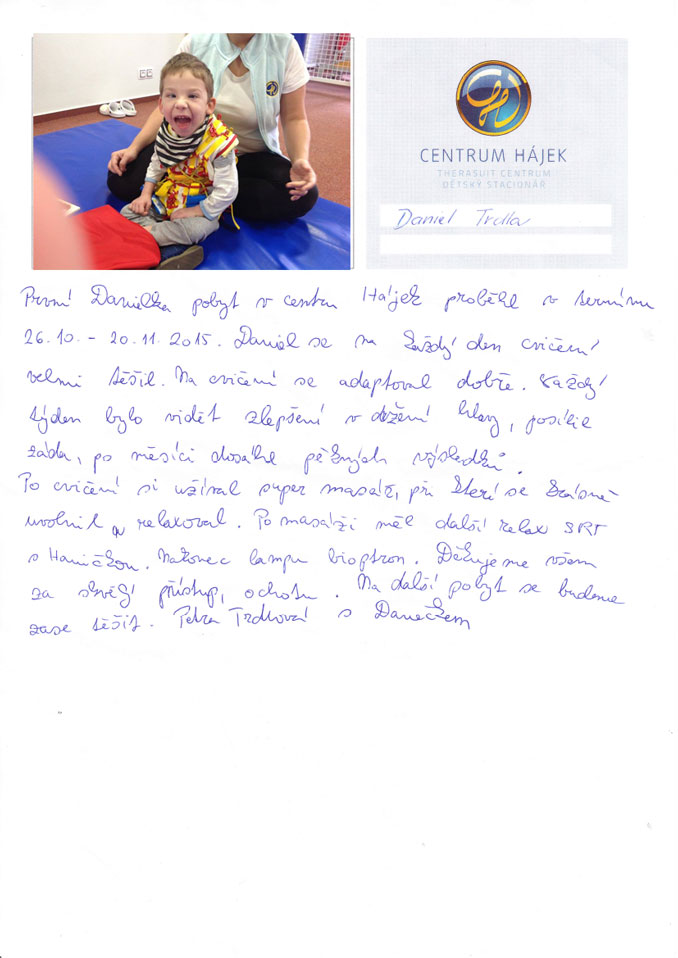 CENTRUM HÁJEK
THERASUIT CENTRUM
DĚTSKÝ STACIONÁŘ
Daniel Trdla
První Danielka pobyt v centru Hájek proběhl v termínu
26.10. - 20.11. 2015. Daniel se na každý den cvičení
velmi těšil. Na cvičení se adaptoval dobře. Každý
týden bylo vidět zlepšení v držení hlavy, posílil
záda, po měsíci dosáhl pěkných výsledků.
Po cvičení si užíval super masáž, při které se krásně
uvolnil a relaxoval. Po masáži měl další relax SRT
s Haničkou. Nakonec lampu bioptron. Děkujeme všem
za skvělý přístup, ochotu. Na další pobyt se budeme
zase těšit. Petra Trdlová s Danečkem